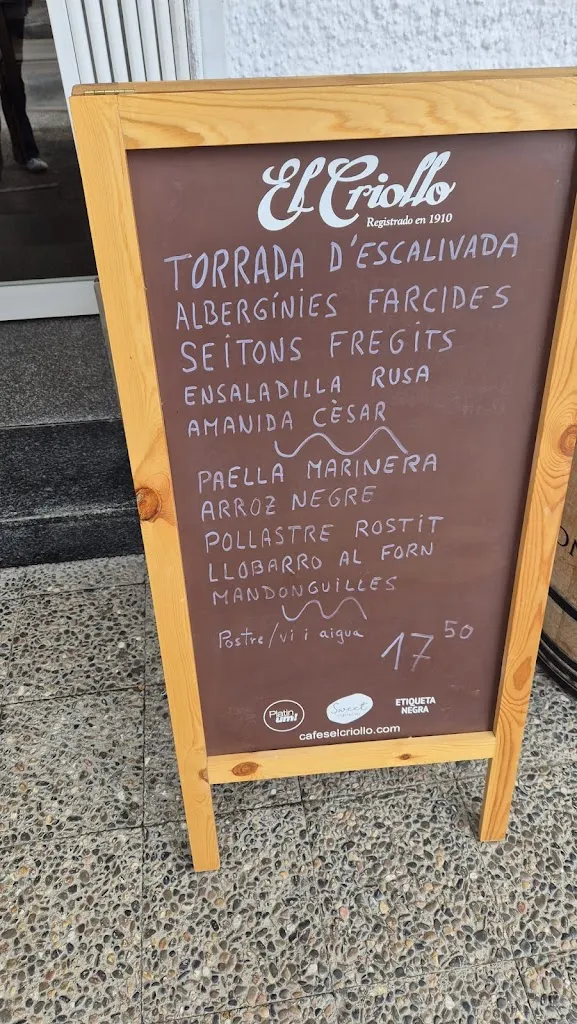 El Criollo
Registrado en 1910
TORRADA D'ESCALIVADA
ALBERGÍNIES FARCIDES
SEITONS FREGITS
ENSALADILLA RUSA
AMANIDA CÈSAR
PAELLA MARINERA
ARROZ NEGRE
POLLASTRE ROSTIT
LLOBARRO AL FORN
MANDONGUILLES
Postre/vi i aigua
17 50
Platin um!
Sweet
ETIQUETA NEGRA
cafeselcriollo.com